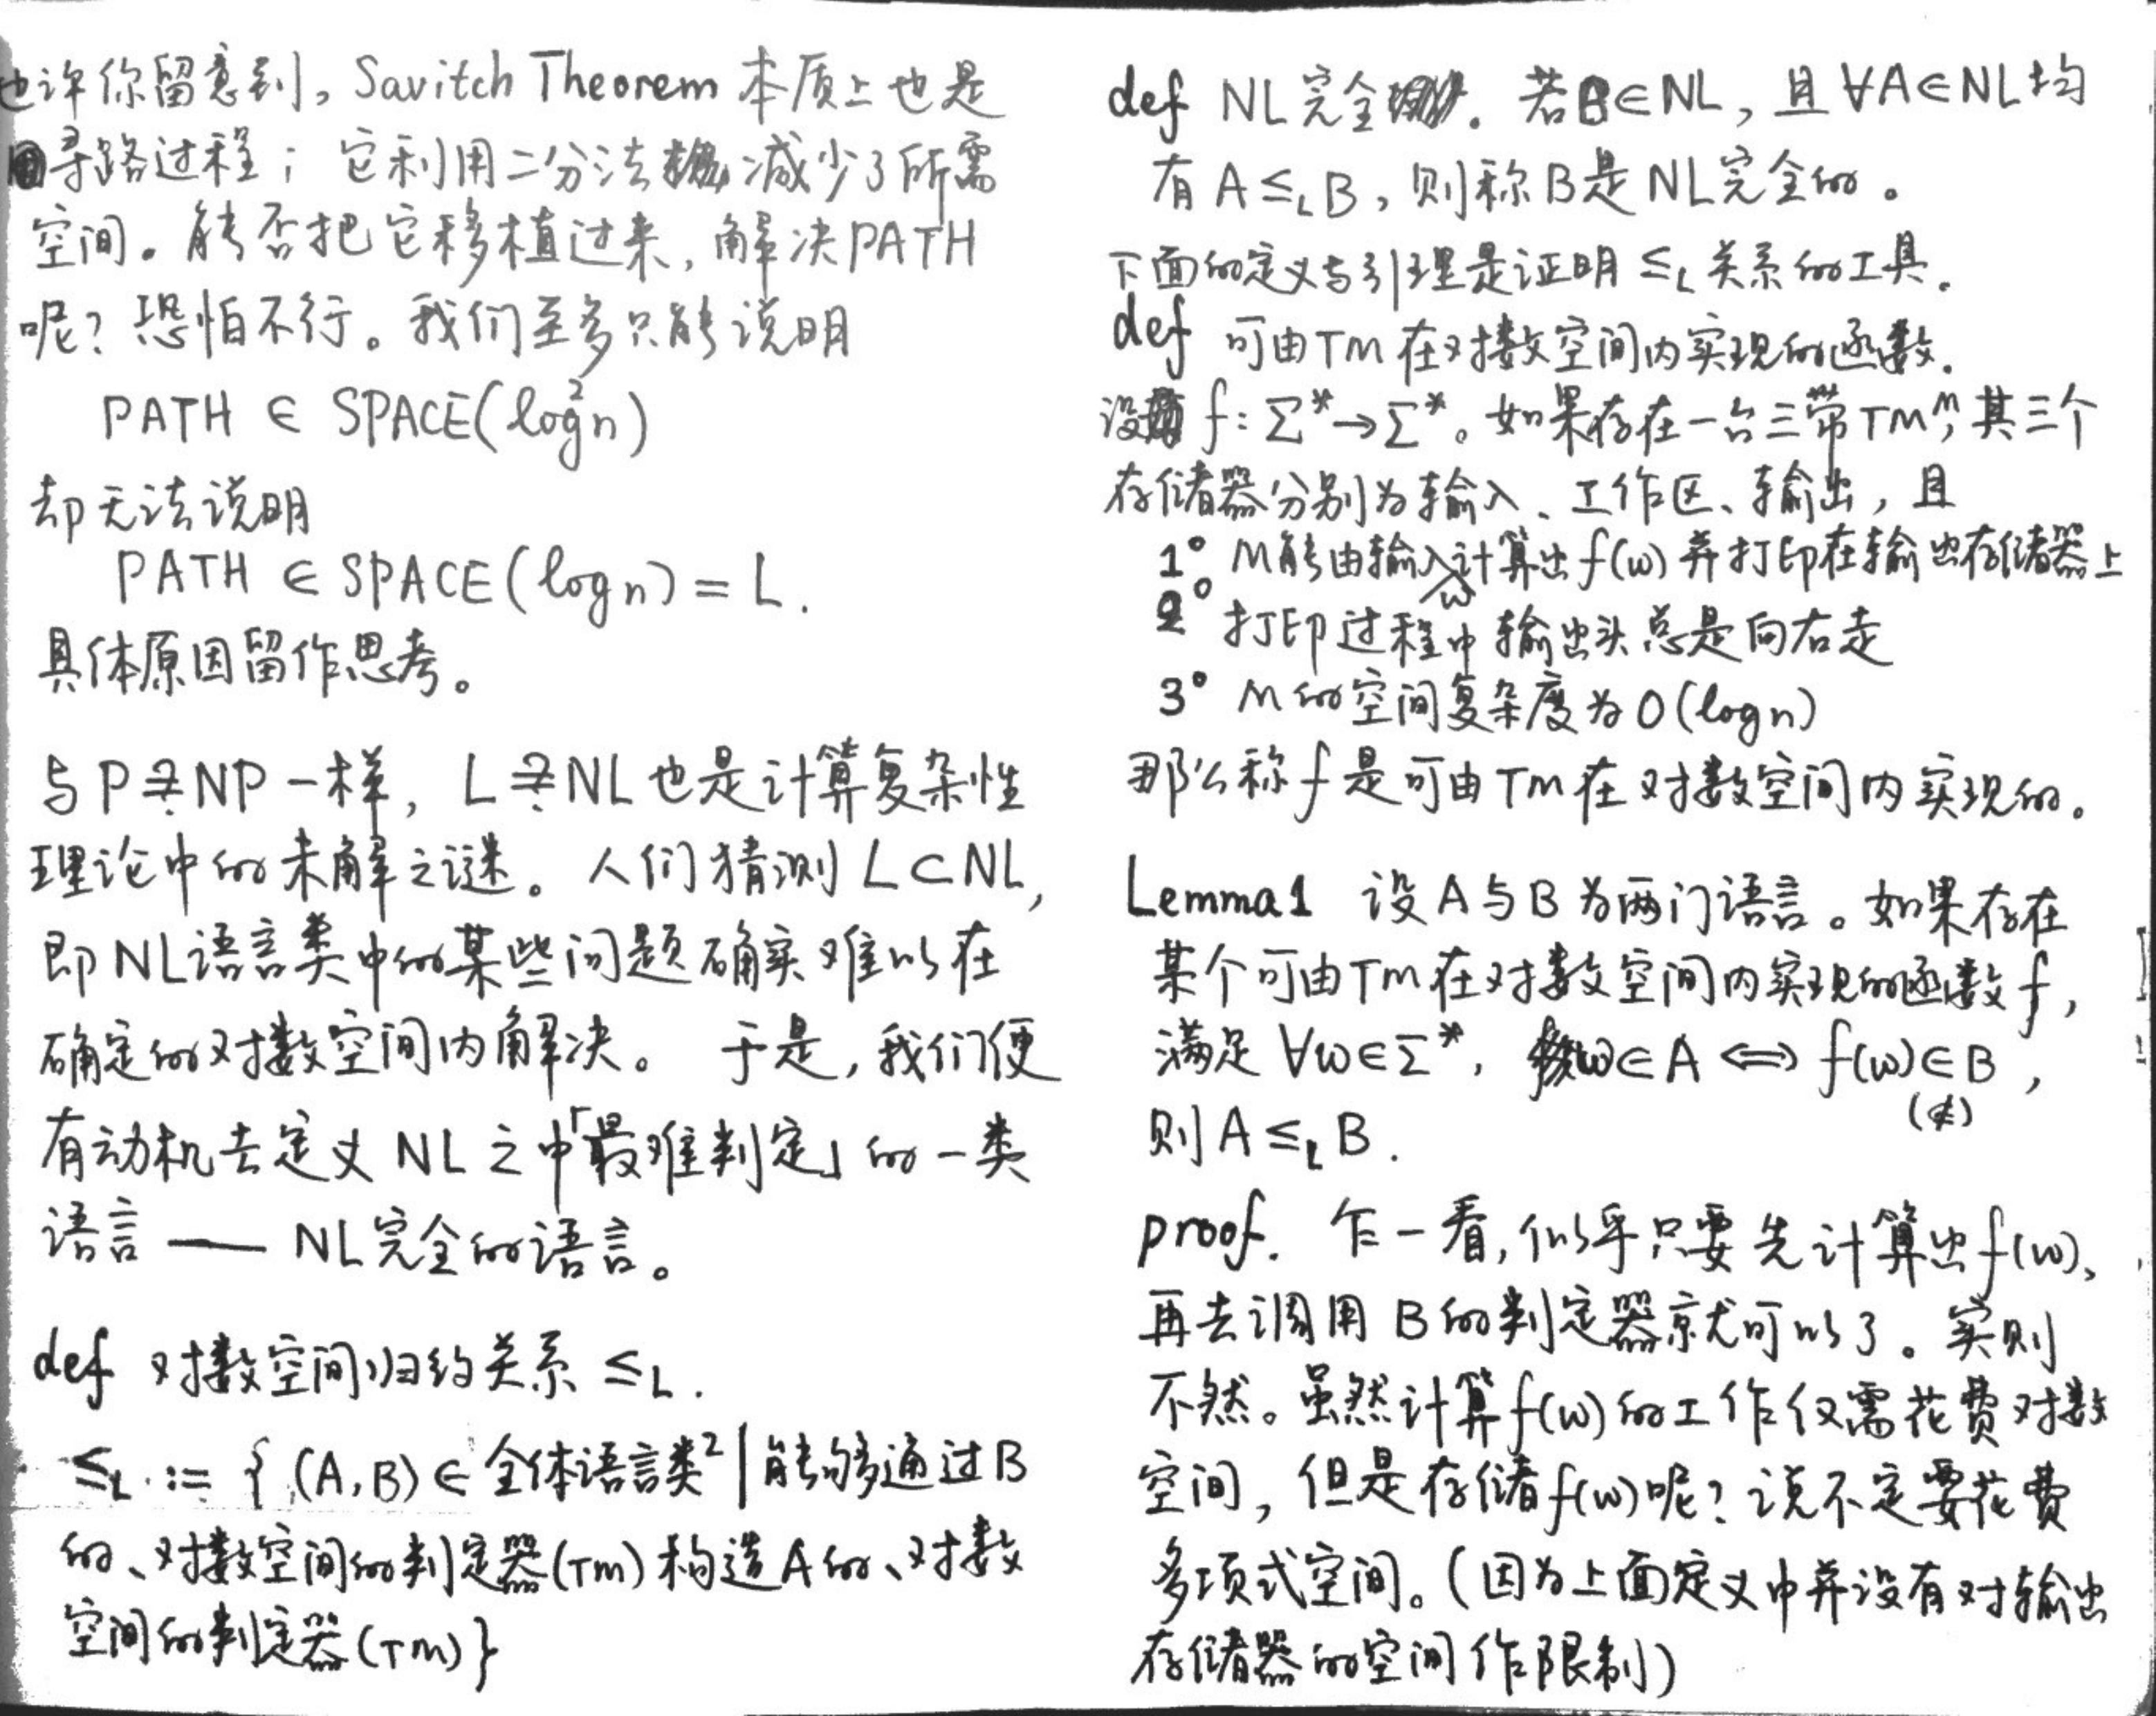 也许你留意到，Savitch Theorem 本质上也是
寻路过程；它利用二分法减少了所需
空间。能否把它移植过来，解决PATH
呢？恐怕不行。我们至多只能说明
PATH ∈ SPACE(log²n)
却无法说明
PATH ∈ SPACE(log n) = L.
具体原因留作思考。
与P≟NP一样，L≟NL也是计算复杂性
理论中的未解之谜。人们猜测L⊂NL，
即NL语言类中的某些问题确实难以在
确定的对数空间内解决。于是，我们便
有动机去定义NL之中「最难判定」的一类
语言——NL完全的语言。
def 对数空间归约关系 ≤L.
≤L := {(A,B)∈全体语言类²|能够通过B
的、对数空间的判定器(TM)构造A的、对数
空间的判定器(TM)}
def NL完全。若B∈NL，且∀A∈NL均
有A≤LB，则称B是NL完全的。
下面的定义与引理是证明≤L关系的工具.
def 可由TM在对数空间内实现的函数.
设f: Σ*→Σ*。如果存在一台三带TM M，其三个
存储器分别为输入、工作区、输出，且
1° M能由输入w计算出f(w)并打印在输出存储器上
2° 打印过程中输出头总是向右走
3° M的空间复杂度为O(log n)
那么称f是可由TM在对数空间内实现的。
Lemma1 设A与B为两门语言。如果存在
某个可由TM在对数空间内实现的函数f，
满足∀w∈Σ*, w∈A ⟺ f(w)∈B，
(∉)
则A≤LB.
proof. 乍一看，似乎只要先计算出f(w)、
再去调用B的判定器就可以了。实则
不然。虽然计算f(w)的工作仅需花费对数
空间，但是存储f(w)呢？说不定要花费
多项式空间。(因为上面定义中并没有对输出
存储器的空间作限制)